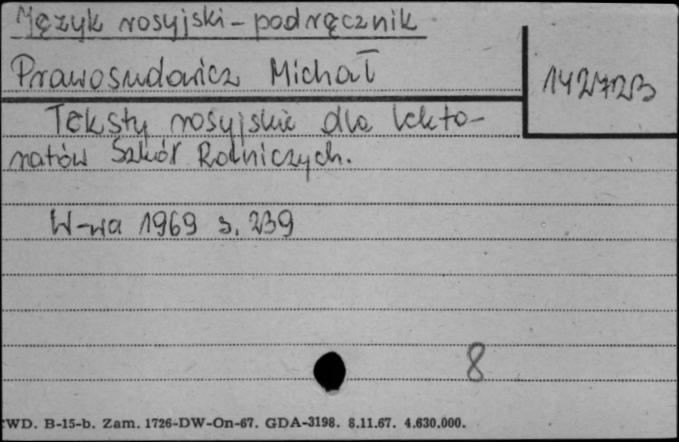 Język rosyjski - podręcznik
Prawosudowicz Michał
142723
Teksty rosyjskie dla lekto-
ratów Szkół Rolniczych.
W-wa 1969 s. 239
8
WD. B-15-b. Zam. 1726-DW-On-67. GDA-3198. 8.11.67. 4.630.000.